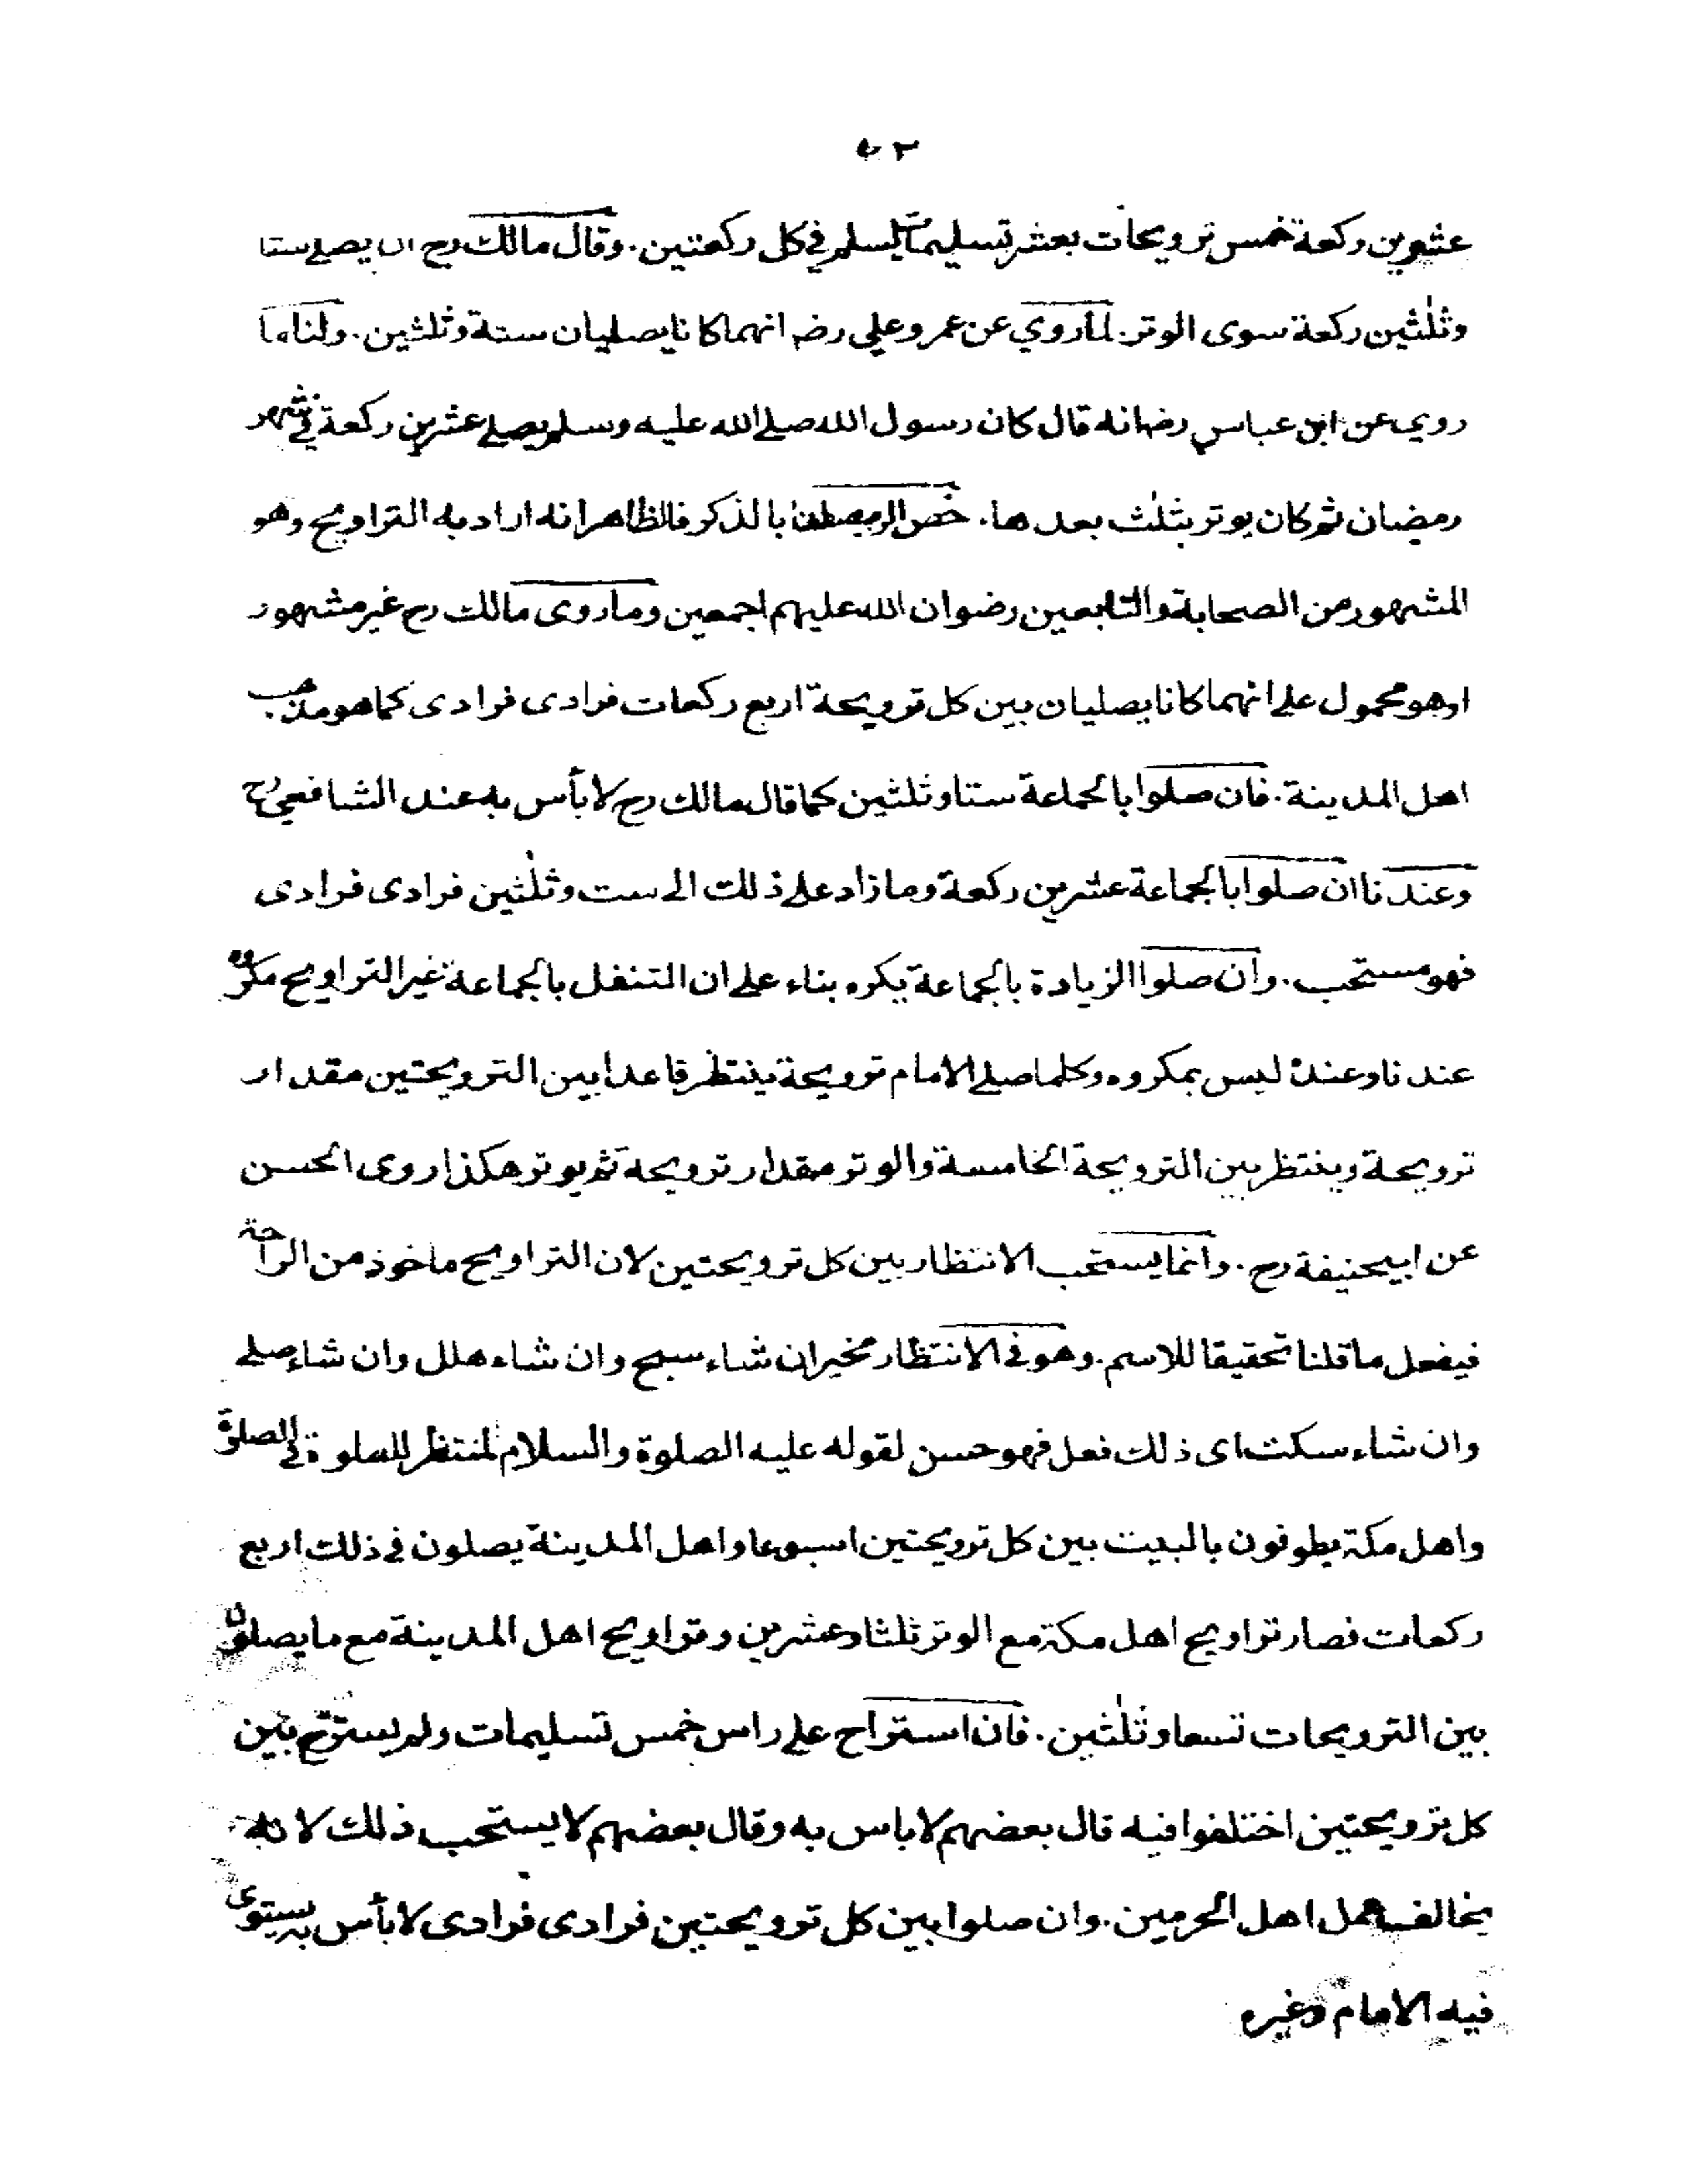 عشرين ركعة خمس ترويحات بعشر تسليمات يسلم في كل ركعتين. وقال مالك رح ان يصلے ستا
وثلٰثين ركعة سوى الوتر. لما روي عن عمر وعلي رضـ انهما كانا يصليان ستة وثلثين. ولنا ما
روي عن ابن عباس رضـ انه قال كان رسول الله صلے الله عليه وسلم يصلے عشرين ركعة في شهر
رمضان ثم كان يوتر بثلٰث بعدها. خص بالذكر فالظاهر انه اراد به التراويح وهو
المشهور من الصحابة والتابعين رضوان الله عليهم اجمعين وما روى مالك رح غير مشهور
او هو محمول علے انهما كانا يصليان بين كل ترويحة اربع ركعات فرادى فرادى كما هو مذهب
اهل المدينة. فان صلوا بالجماعة ستا وثلثين كما قال مالك رح لا بأس به عند الشافعي رح
وعندنا ان صلوا بالجماعة عشرين ركعة وما زاد علے ذلك الے ست وثلٰثين فرادى فرادى
فهو مستحب. وان صلوا الزيادة بالجماعة يكره بناء علے ان التنفل بالجماعة غير التراويح مكروه
عندنا وعنده ليس بمكروه وكلما صلے الامام ترويحة ينتظر قاعدا بين الترويحتين مقدار
ترويحة وينتظر بين الترويحة الخامسة والوتر مقدار ترويحة ثم يوتر هكذا روى الحسن
عن ابيحنيفة رح. وانما يستحب الانتظار بين كل ترويحتين لان التراويح ماخوذ من الراحة
فيفعل ما قلنا تحقيقا للاسم. وهو في الانتظار مخير ان شاء سبح وان شاء هلل وان شاء صلے
وان شاء سكت اى ذلك فعل فهو حسن لقوله عليه الصلوة والسلام لمنتظر للصلوة في الصلوة
واهل مكة يطوفون بالبيت بين كل ترويحتين اسبوعا واهل المدينة يصلون في ذلك اربع
ركعات فصار تراويح اهل مكة مع الوتر ثلثا وعشرين وتراويح اهل المدينة مع ما يصلون
بين الترويحات تسعا وثلٰثين. فان استراح علے راس خمس تسليمات ولم يسترح بين
كل ترويحتين اختلفوا فيه قال بعضهم لا باس به وقال بعضهم لا يستحب ذلك لانه
يخالف عمل اهل الحرمين. وان صلوا بين كل ترويحتين فرادى فرادى لا بأس به يستوى
فيه الامام وغيره